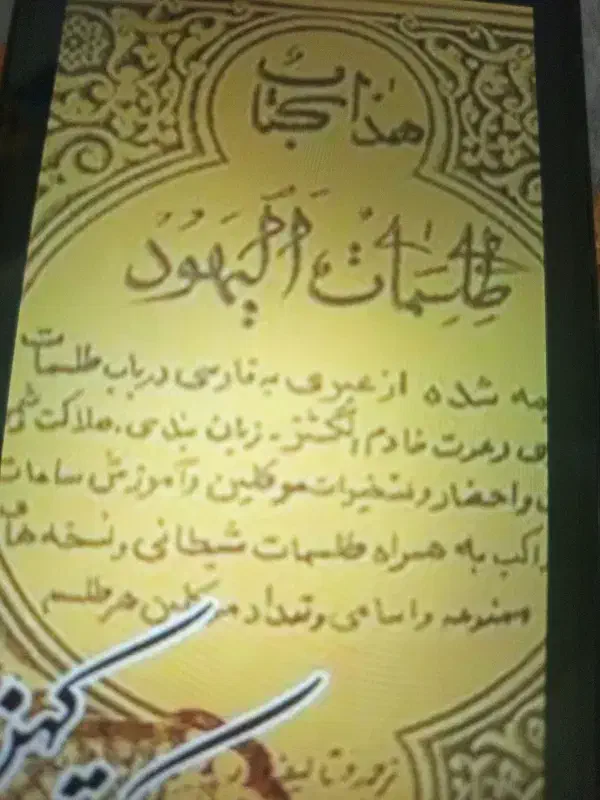 هذا كتاب
طلسمات اليهود
مه شده از عبری به فارسی در باب طلسمات
ی دعوت خادم انگشتر - زبان بندی، هلاکت
و احضار و تسخیرات موکلین و آموزش ساعات
اکب به همراه طلسمات شیطانی و نسخه های
ممنوعه و اسامی و تعداد موکلین هر طلسم